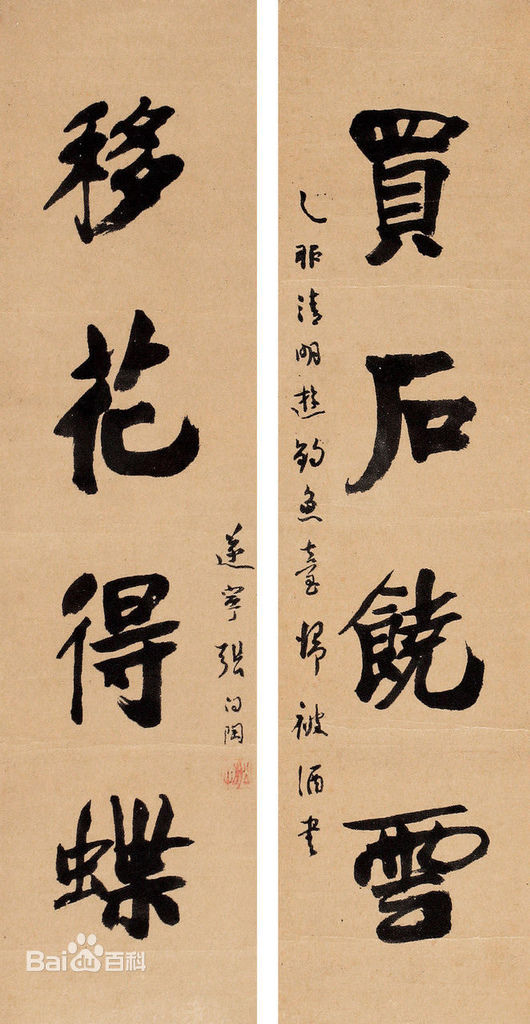 買石饒雲
乙卯清明遊釣魚臺歸被酒書
移花得蝶
遂寧張問陶
Baidu百科